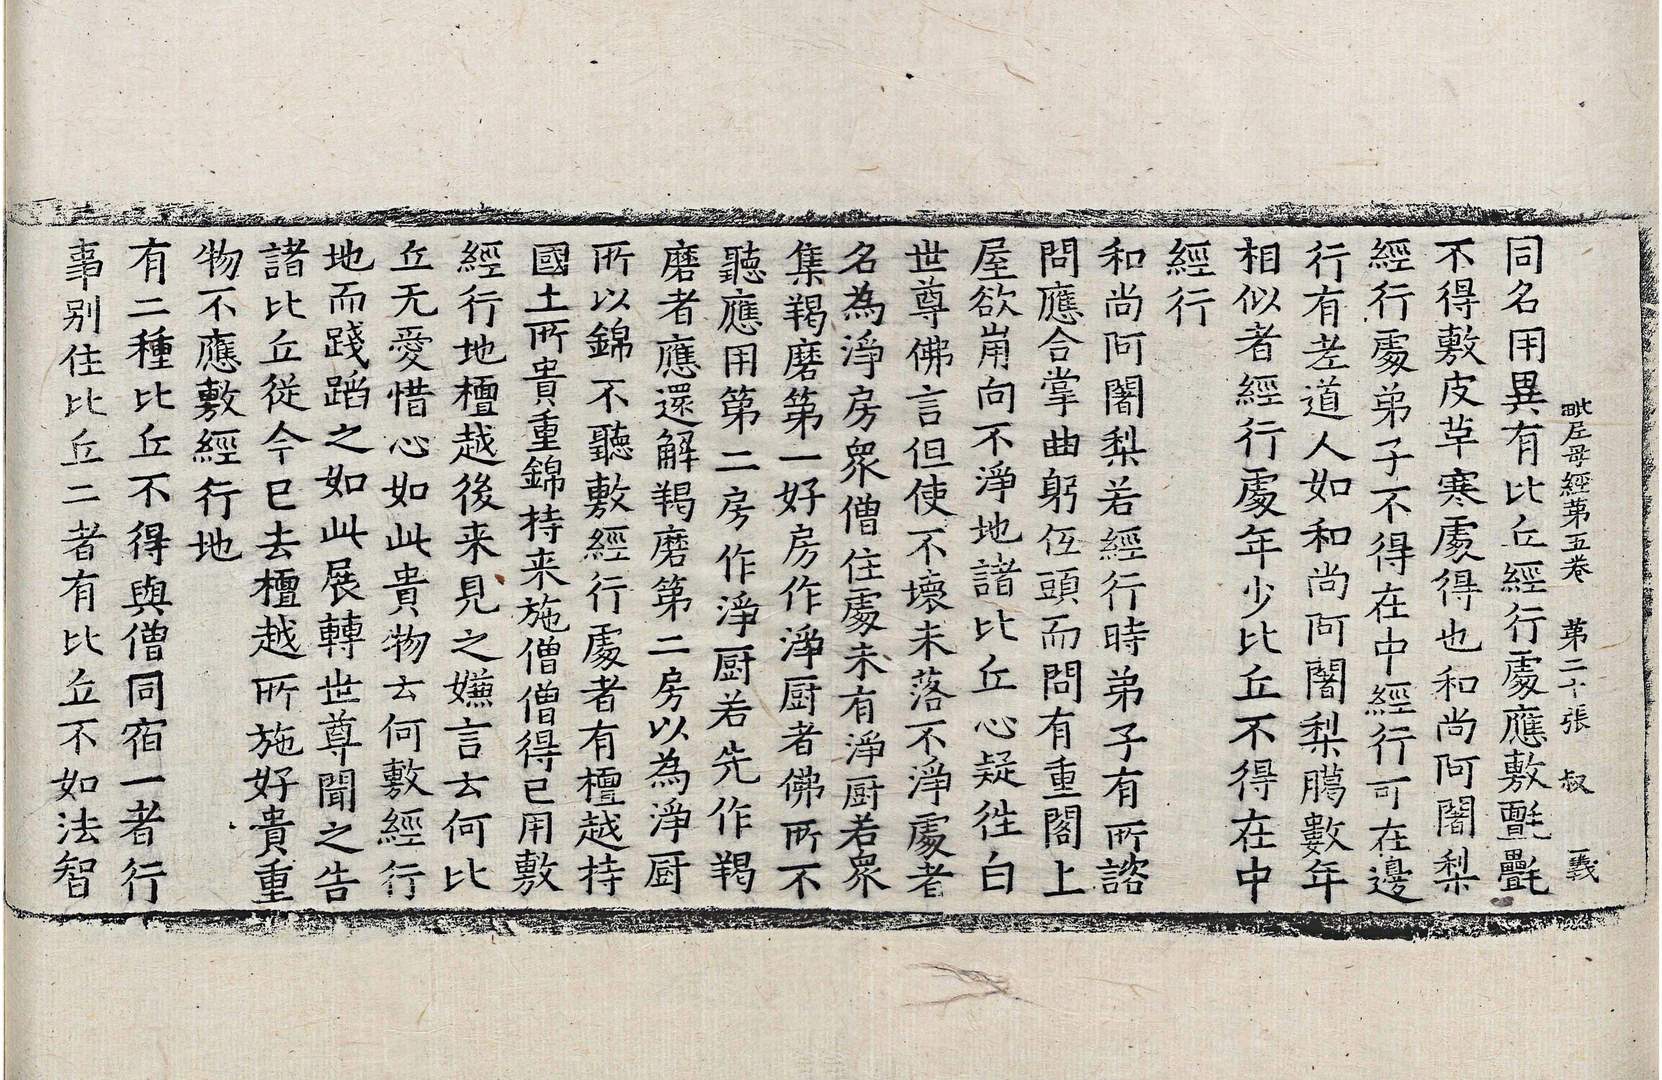 毗尼母經第五卷 第二十張 叔 義
同名用異有比丘經行處應敷㲲㲲
不得敷皮草寒處得也和尚阿闍梨
經行處弟子不得在中經行可在邊
行有差道人如和尚阿闍梨臈數年
相似者經行處年少比丘不得在中
經行
和尚阿闍梨若經行時弟子有所諮
問應合掌曲躬伍頭而問有重閣上
屋欲崩向不淨地諸比丘心疑徃白
世尊佛言但使不壞未落不淨處者
名為淨房衆僧住處未有淨厨若衆
集羯磨第一好房作淨厨者佛所不
聽應用第二房作淨厨若先作羯
磨者應還解羯磨第二房以為淨厨
所以錦不聽敷經行處者有檀越持
國土所貴重錦持来施僧僧得已用敷
經行地檀越後来見之嫌言去何比
丘无愛惜心如此貴物去何敷經行
地而踐蹈之如此展轉世尊聞之告
諸比丘從今已去檀越所施好貴重
物不應敷經行地
有二種比丘不得與僧同宿一者行
事別住比丘二者有比丘不如法智